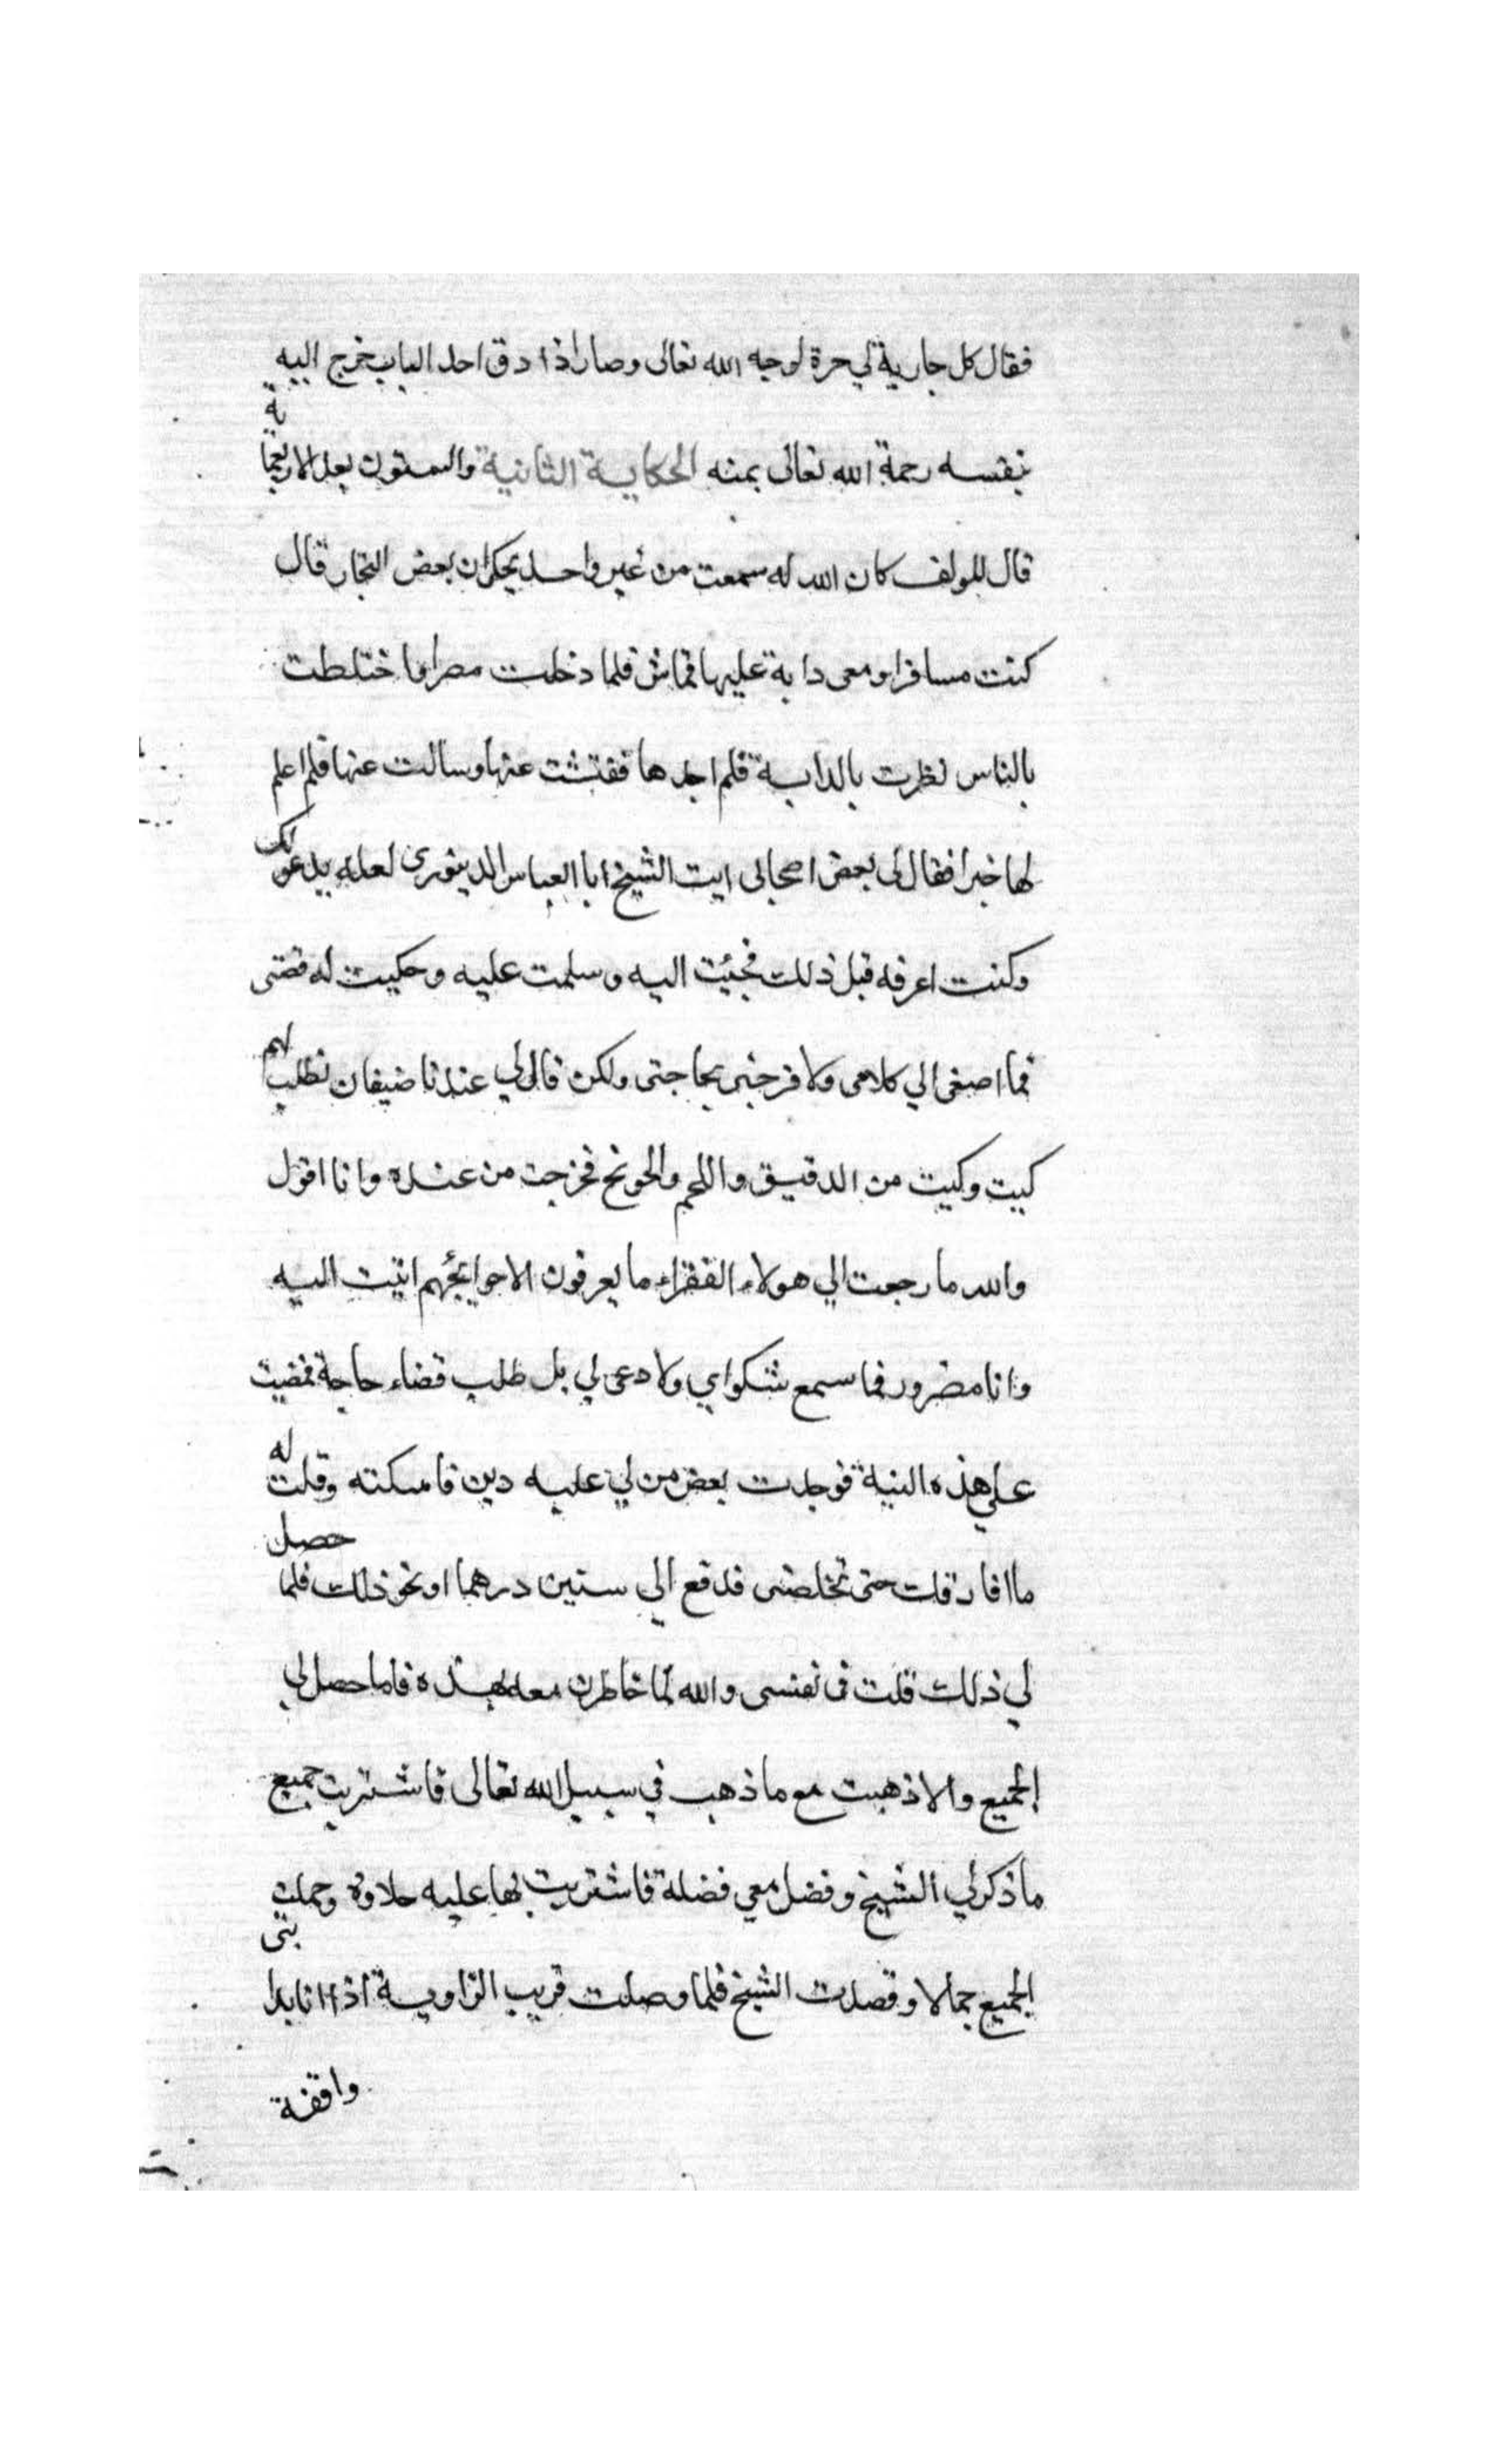 فقال كل جارية لي حرة لوجه الله تعالى وصار اذا دق احد الباب خرج اليه
بنفسه رحمة الله تعالى بمنه الحكاية الثانية والستون بعد الاربعماية
قال المولف كان الله له سمعت من غير واحد يحكى ان بعض التجار قال
كنت مسافرا ومعى دابة عليها قماش فلما دخلت مصر او اختلطت
بالناس نظرت بالدابة فلم اجدها ففتشت عنها وسالت عنها فلم اعلم
لها خبرا فقال لى بعض اصحابى ايت الشيخ ابا العباس الدينورى لعله يدعو لك
وكنت اعرفه قبل ذلك فجئيت اليه وسلمت عليه وحكيت له قصتى
فما اصغى الي كلامى ولا فرحنى بحاجتى ولكن قال لي عندنا ضيفان نطلب لهم
كيت وكيت من الدقيق واللحم والحوئج فخرجت من عنده وانا اقول
والله ما رجعت الي هولاء الفقراء ما يعرفون الا حوايجهم اتيت اليه
وانا مضرور فما سمع شكواي ولا دعى لي بل طلب قضاء حاجة فمضيت
على هذه النية فوجدت بعض من لي عليه دين فامسكته وقلت له
ما افارقك حتى تخلصنى فدفع الى ستين درهما او نحو ذلك فلما حصل
لي ذلك قلت فى نفسى والله لما خاطرن معه بهذه فاما حصل لي
الجميع والا ذهبت مع ما ذهب في سبيل الله تعالى فاشتريت جميع
ما ذكر لي الشيخ وفضل معي فضلة فاشتريت بها عليه حلاوة وحملت
الجميع جمالا وقصدت الشيخ فلما وصلت قريب الزاوية اذا انا بدابتى
واقفة